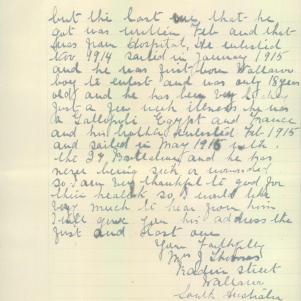 but the last one that he
got was written Feb and that
was from Hospital, He enlisted
Nov 1914 sailed in January 1915
and he was first born Wallaroo
boy to enlist and was only 18 years
old and he has been
just a few illness he was
a Gallopoli Egypt and France
and his brother enlisted Feb 1915
and sailed in May 1915 with
the 27 Battalion and he has
never being sick or wounded
so I am very thankful to God for
their health so I would like
very much to hear from him
I will give you his address the
first and last one
Yours faithfully
Mrs J Thomas
Street
Wallaroo
South Australia